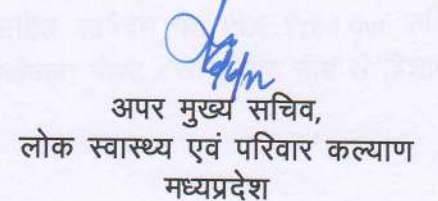 अपर मुख्य सचिव,
लोक स्वास्थ्य एवं परिवार कल्याण
मध्यप्रदेश